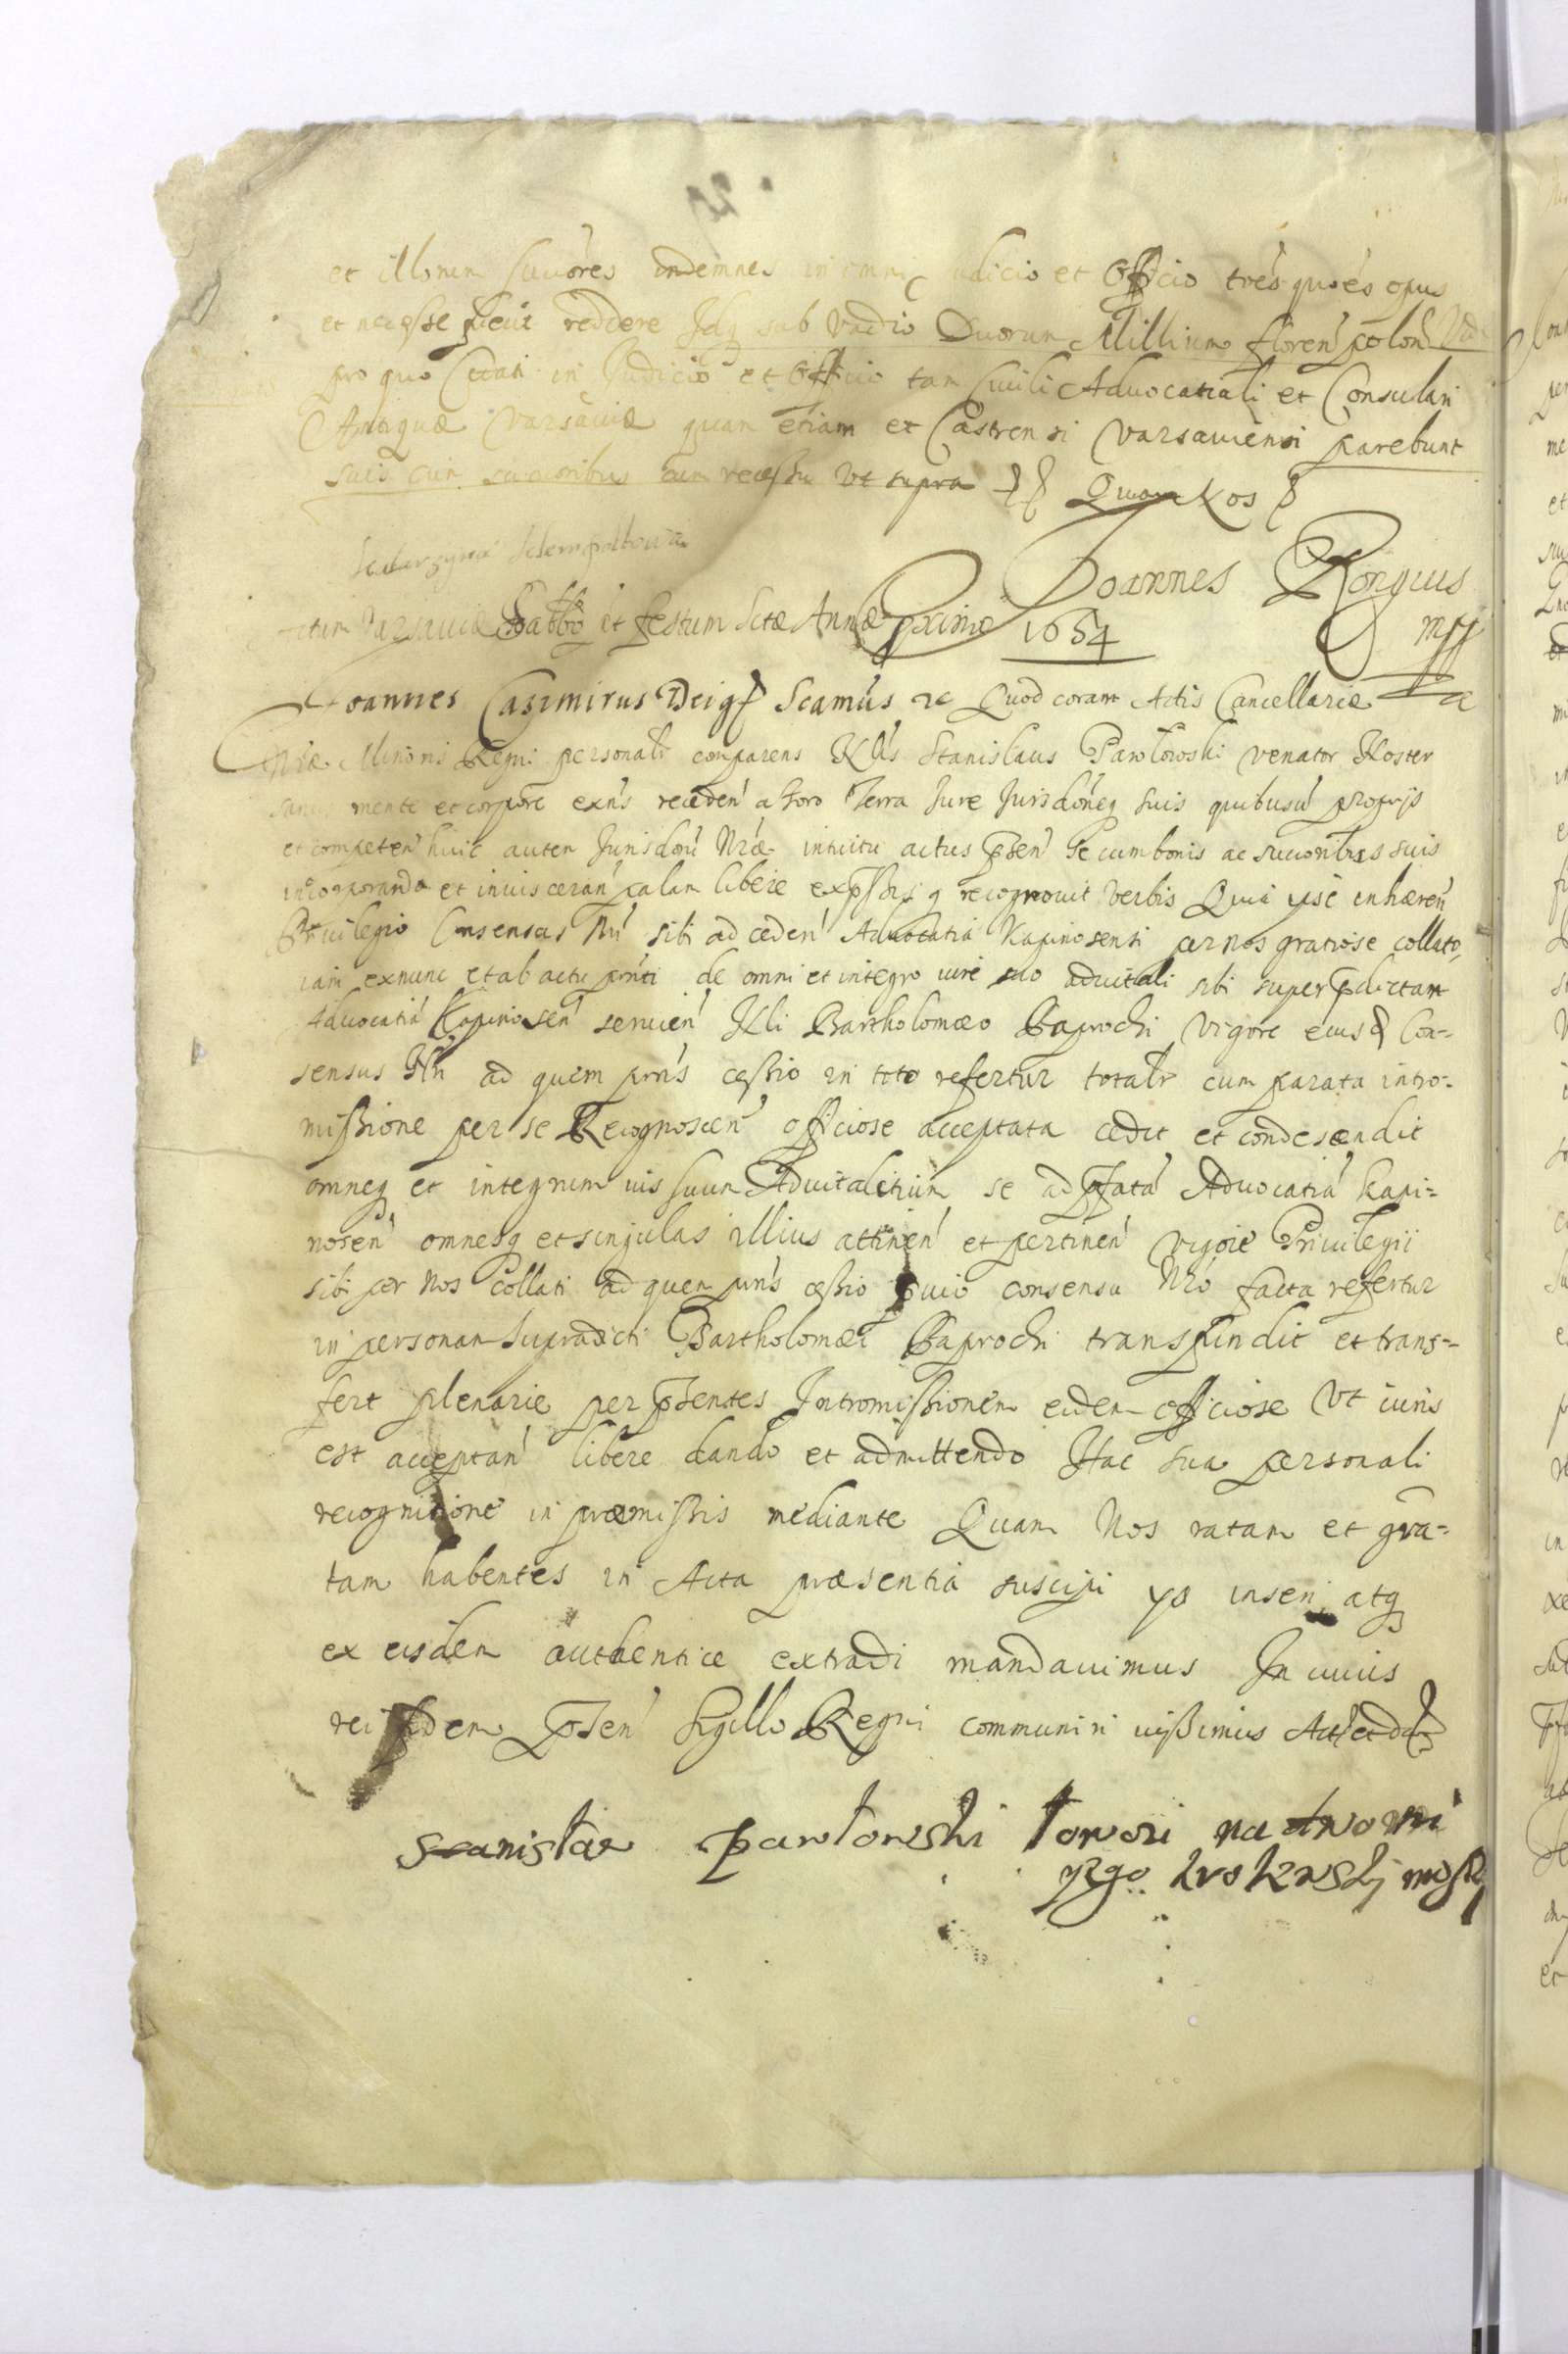 et illorum succores indemnes in omni judicio et Officio toties quoties opus
et necesse fuerit reddere Idq sub vadio Duorum Millium floren polon
pro quo Citati in Judicio et Officio tam Civili Advocatiali et Consulari
Antiquæ Varsaviæ quam etiam et Castrensi Varsaviensi parebunt
suis cum succoribus cum recessu Vt supra Quam Nos
Joannes Rongius
mpp
Actum Varsaviæ Sabbo et festum Sctæ Annæ Proximo 1654
Joannes Casimirus Dei g Scamus Quod coram Actis Cancellariæ
Nræ Minoris Regni personalr comparens Nlis Stanislaus Pawłowski venator Noster
sanus mente et corpore exns receden a foro Terra Jure Jurisdoneq suis quibusu proprijs
et competen huic autem Jurisdoni Nræ intuitu actus psen se cum bonis ac succoribus suis
incorporando et invisceran palam libere expssisq recognovit verbis Quia ipse inhæren
Privilegio Consensus Nri sibi ad ceden Advocatia Kapinosensi per nos gratiose collato,
iam exnunc et ab actu prnti de omni et integro iure suo advitali sibi super pdictam
Advocatia Kapinosen servien Nli Bartholomæo Paprocki vigore eius Con=
sensus Nri ad quem prns cessio in toto refertur totalr cum parata intro=
missione per se Recognoscen officiose acceptata cedit et condescendit
omneq et integrum ius suum Advitalitium se ad pfata Advocatia Kapi=
nosen omnesq et singulas illius attinen et pertinen vigore Privilegii
sibi per Nos Collati ad quem prns cessio pvio consensu Nro facta refertur
in personam Supradicti Bartholomæi Paprocki transfundit et trans=
fert plenarie per psentes Intromissionem eidem officiose Vt iuris
est acceptan libere dando et admittendo Hac sua personali
recognitione in præmissis mediante Quam Nos ratam et gra=
tam habentes in Acta præsentia suscipi ys inseri atq
ex eisdem authentice extradi mandavimus In cuius
rei fidem psen Sigillo Regni communiri iussimus Act et dat
Stanisław Pawłowski Łowczi nadworni